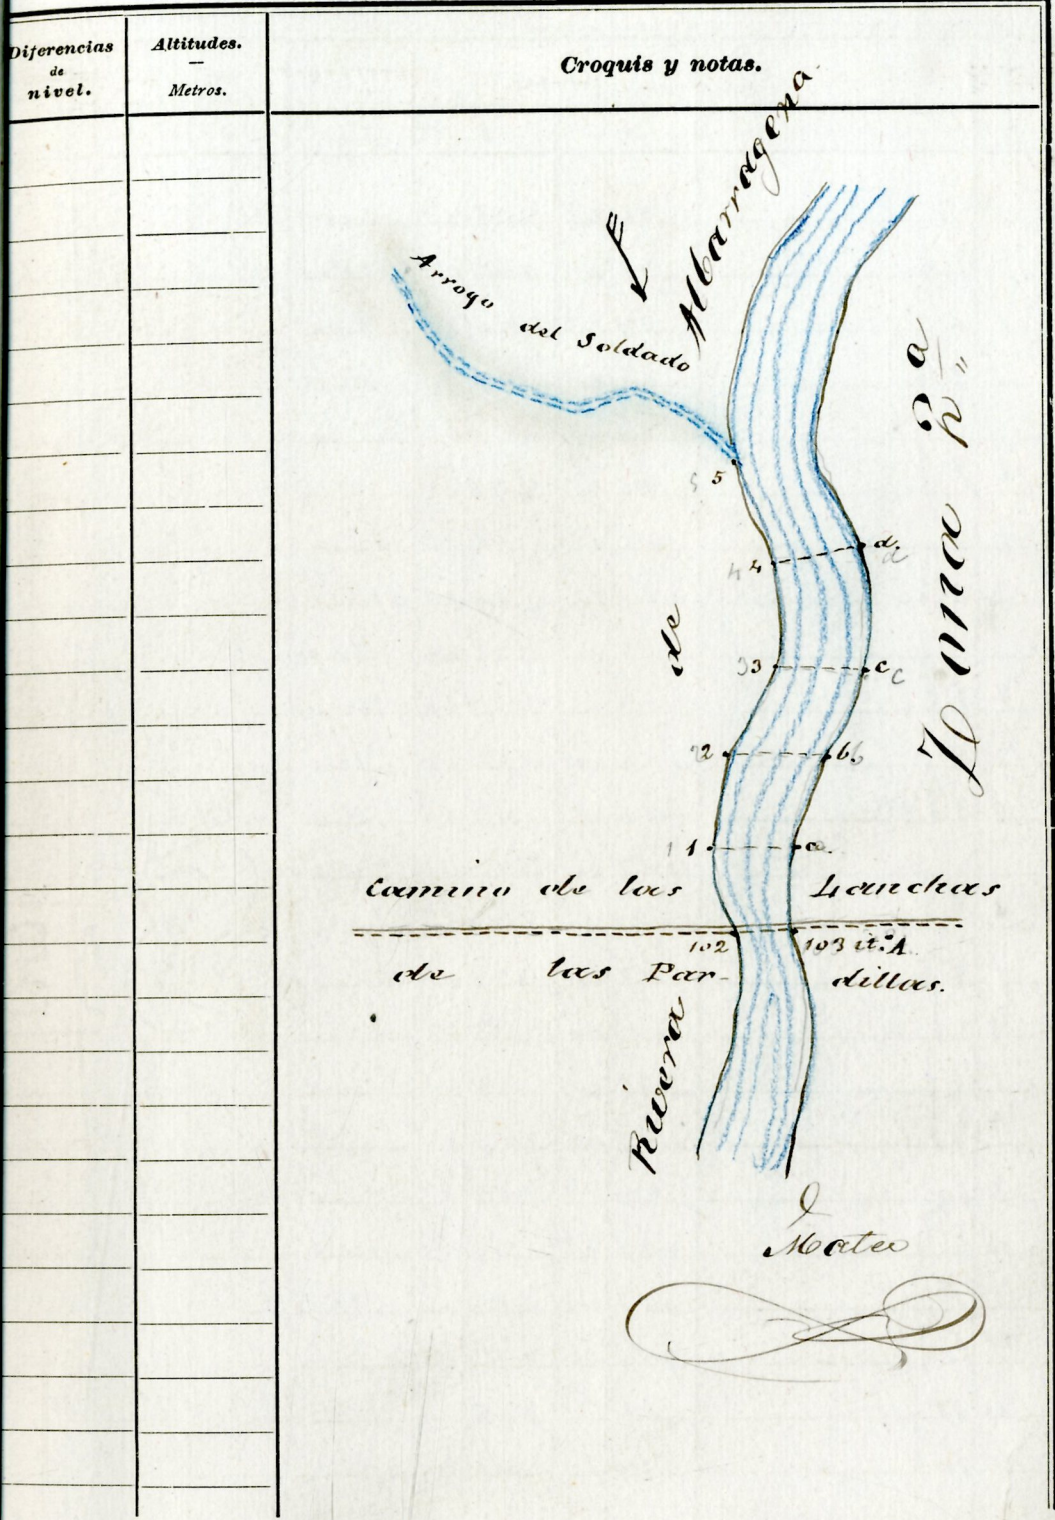 Diferencias
de
nivel.
Altitudes.
—
Metros.
Croquis y notas.
Arroyo del Soldado
Rivera de Albarragena.
Zona 2ª
5 5
4 4 d. d
3 3 c c
2 2 b. b
1 1 a.
Camino de las Lanchas
102 103 it.º A
de las Par-
dillas.
Mateo